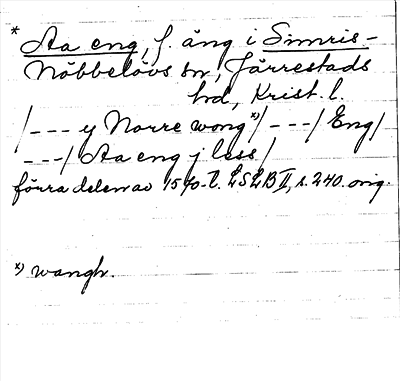 * Aa eng, f. äng i Simris-
Nöbbelövs sn, Järrestads
hd, Krist. l.
/--- y Norre wong *)/ ---/ Eng/
---/ Aa eng j less/
förra delen av 1570-t. LSLB II, s. 240. orig.
*) wangh.